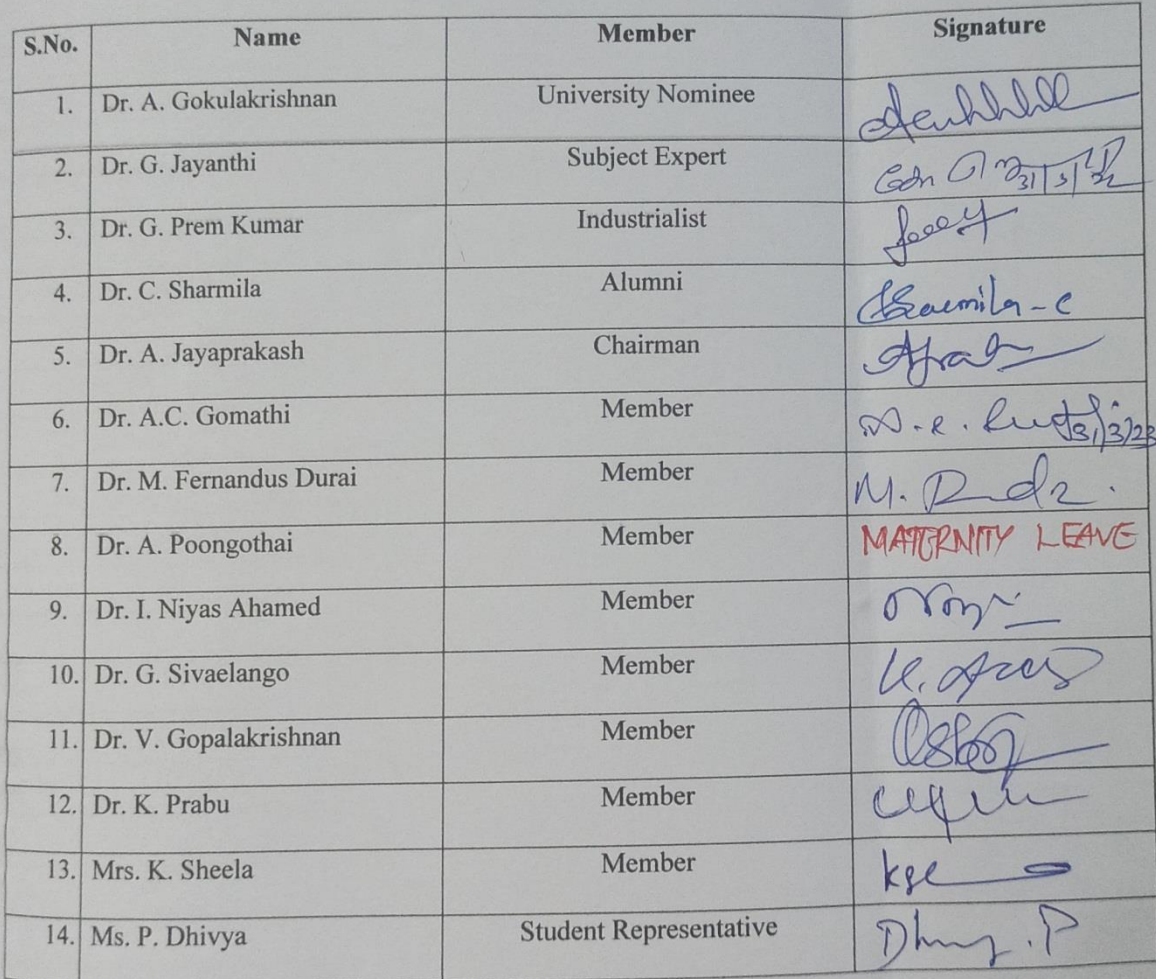 S.No. Name Member Signature
1. Dr. A. Gokulakrishnan University Nominee
2. Dr. G. Jayanthi Subject Expert
3. Dr. G. Prem Kumar Industrialist
4. Dr. C. Sharmila Alumni
5. Dr. A. Jayaprakash Chairman
6. Dr. A.C. Gomathi Member 31/3/23
7. Dr. M. Fernandus Durai Member M.
8. Dr. A. Poongothai Member MATERNITY LEAVE
9. Dr. I. Niyas Ahamed Member
10. Dr. G. Sivaelango Member
11. Dr. V. Gopalakrishnan Member
12. Dr. K. Prabu Member
13. Mrs. K. Sheela Member
14. Ms. P. Dhivya Student Representative